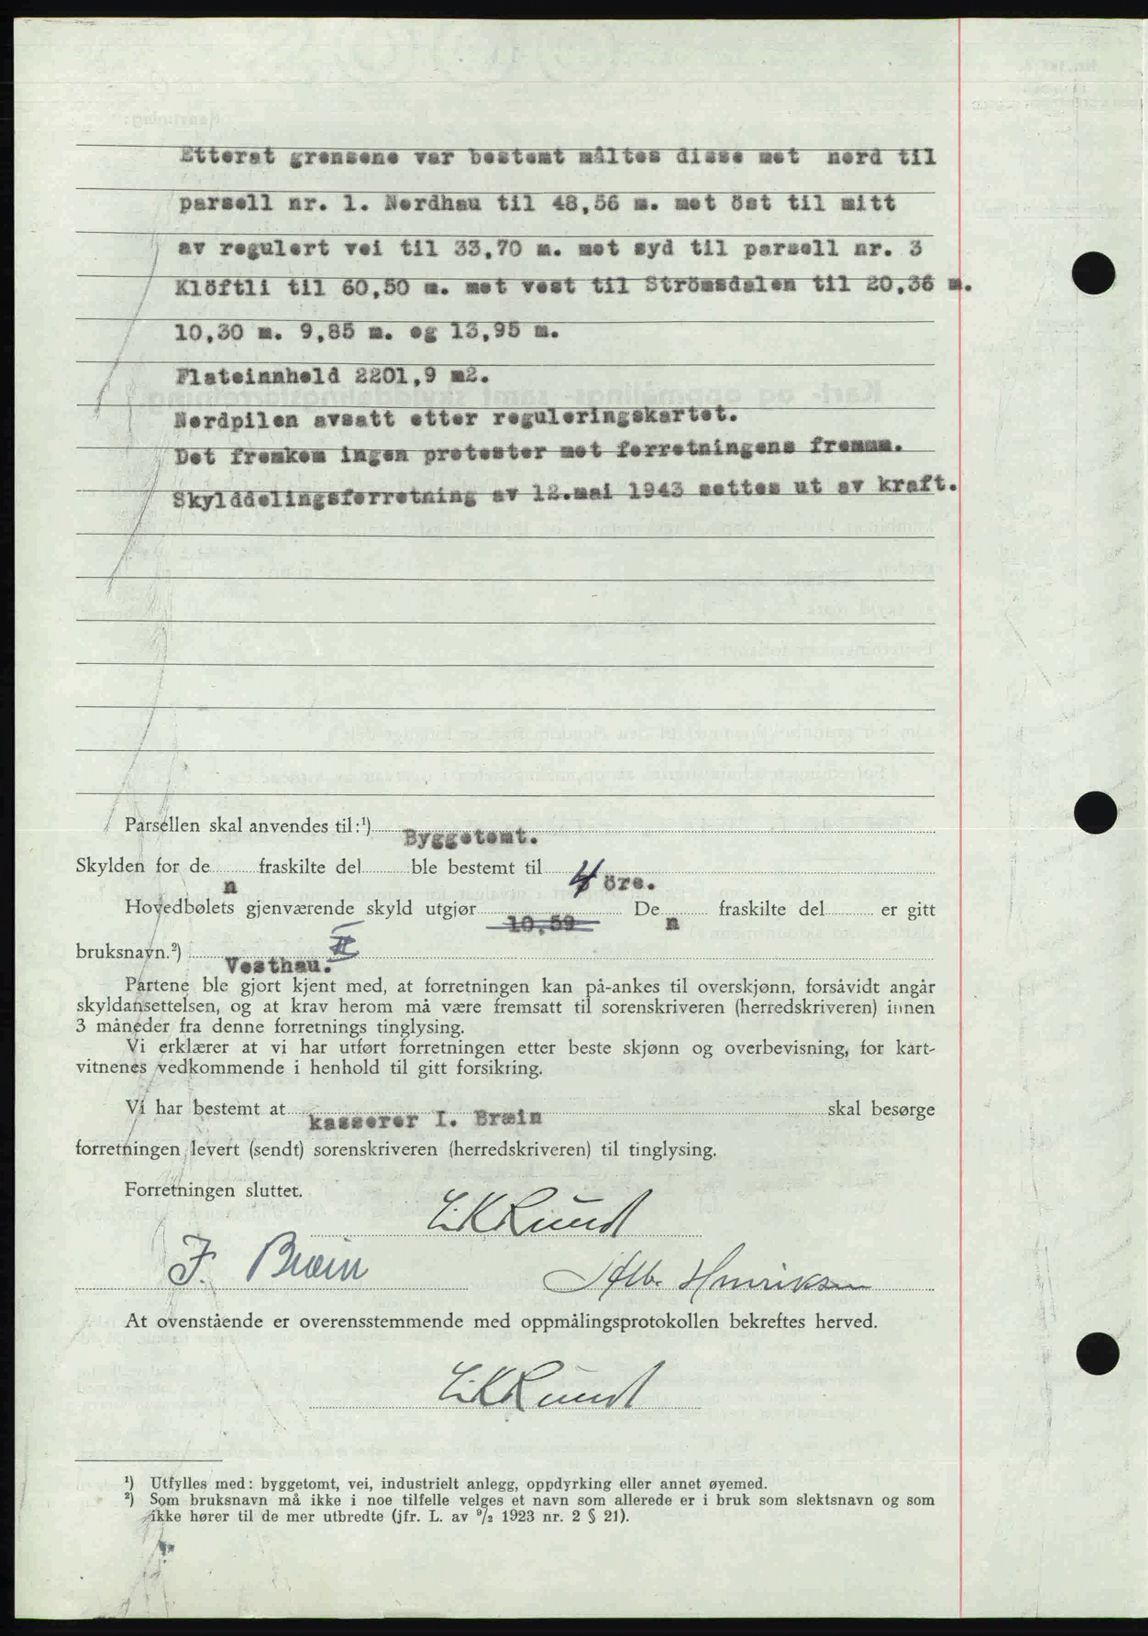 Etterat grensene var bestemt måltes disse mot nord til
parsell nr. 1. Nordhau til 48,56 m. mot öst til mitt
av regulert vei til 33,70 m. mot syd til parsell nr. 3
Klöftli til 60,50 m. mot vest til Strömsdalen til 20,36 m.
10,30 m. 9,85 m. og 13,95 m.
Flateinnhold 2201,9 m2.
Nordpilen avsatt etter reguleringskartet.
Det fremkom ingen protester mot forretningens fremme.
Skylddelingsforretning av 12.mai 1943 settes ut av kraft.
Parsellen skal anvendes til:¹) Byggetomt.
Skylden for de n fraskilte del ble bestemt til 4 öre.
Hovedbølets gjenværende skyld utgjør 10,59 De n fraskilte del er gitt
bruksnavn.²) Vesthau. II
Partene ble gjort kjent med, at forretningen kan på-ankes til overskjønn, forsåvidt angår
skyldansettelsen, og at krav herom må være fremsatt til sorenskriveren (herredskriveren) innen
3 måneder fra denne forretnings tinglysing.
Vi erklærer at vi har utført forretningen etter beste skjønn og overbevisning, for kart-
vitnenes vedkommende i henhold til gitt forsikring.
Vi har bestemt at kasserer I. Bræin skal besørge
forretningen levert (sendt) sorenskriveren (herredskriveren) til tinglysing.
Forretningen sluttet.
E.K Rund
J. Bræin Alb. Henriksen
At ovenstående er overensstemmende med oppmålingsprotokollen bekreftes herved.
E.K Rund
¹) Utfylles med: byggetomt, vei, industrielt anlegg, oppdyrking eller annet øyemed.
²) Som bruksnavn må ikke i noe tilfelle velges et navn som allerede er i bruk som slektsnavn og som
ikke hører til de mer utbredte (jfr. L. av ⁹/₂ 1923 nr. 2 § 21).